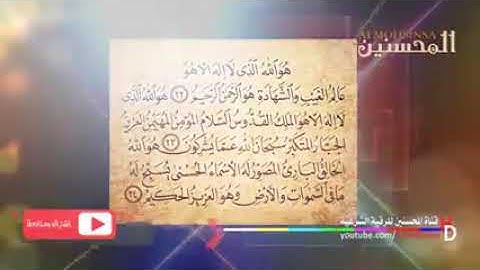 ALMOHSINSA
المحسنين
هُوَ ٱللَّهُ ٱلَّذِى لَا إِلَٰهَ إِلَّا هُوَ
عَالِمُ الْغَيْبِ وَالشَّهَادَةِ هُوَ الرَّحْمَٰنُ الرَّحِيمُ ﴿٢٢﴾ هُوَ اللَّهُ الَّذِى
لَا إِلَٰهَ إِلَّا هُوَ الْمَلِكُ الْقُدُّوسُ السَّلَامُ الْمُؤْمِنُ الْمُهَيْمِنُ الْعَزِيزُ
الْجَبَّارُ الْمُتَكَبِّرُ سُبْحَانَ اللَّهِ عَمَّا يُشْرِكُونَ ﴿٢٣﴾ هُوَ اللَّهُ
الْخَالِقُ الْبَارِئُ الْمُصَوِّرُ لَهُ الْأَسْمَاءُ الْحُسْنَى يُسَبِّحُ لَهُ
مَا فِى السَّمَوَاتِ وَالْأَرْضِ وَهُوَ الْعَزِيزُ الْحَكِيمُ ﴿٢٤﴾
قناة المحسنين للرقية الشرعية
youtube.com/
D